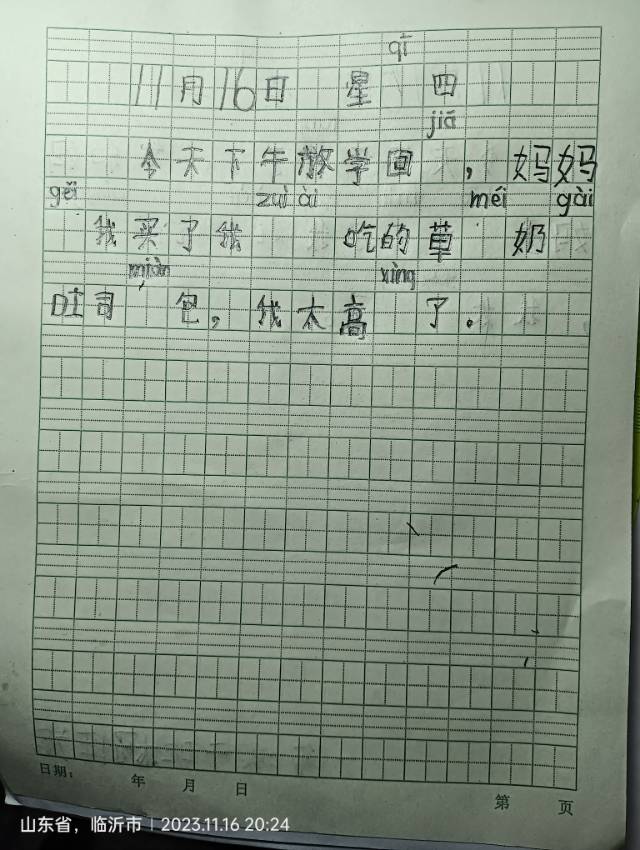 qī
11月16日 星 四
jiā
今天下牛散学回 ，妈妈
gěi zuì ài méi gài
我买了我 吃的草 奶
miàn xìng
吐司 包，我太高 了。
日期： 年 月 日 第 页
山东省，临沂市 | 2023.11.16 20:24